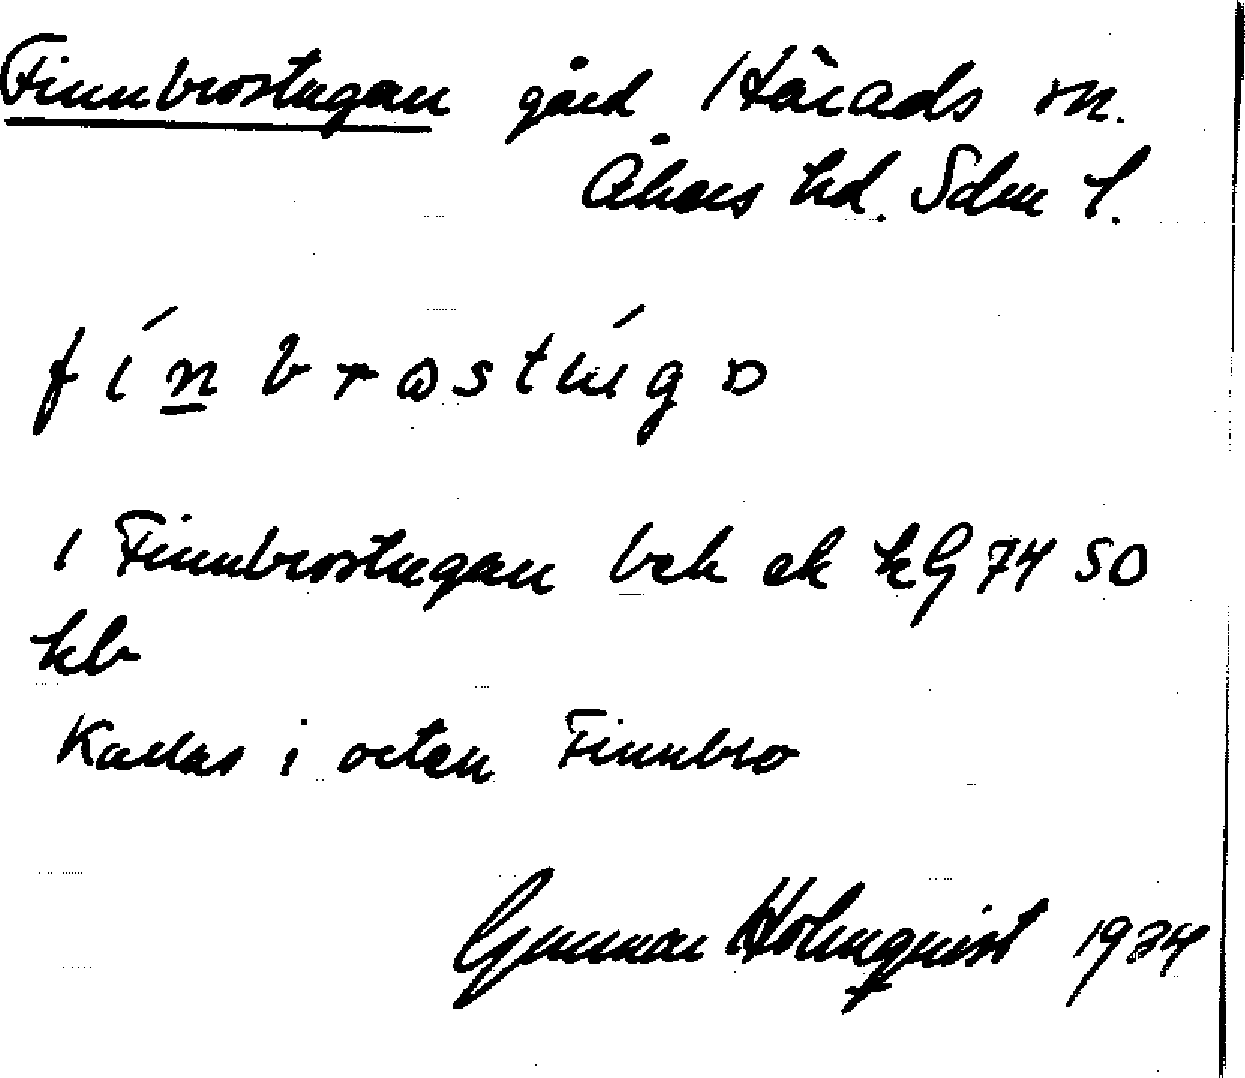 Finnbrostugan gård Härads sn.
Åkers hd. Sdm l.
finbrostugo
i Finnbrostugan bek ek kG 74 SO
kb
Kallas i orten Finnbro
Gunnar Holmquist 1934